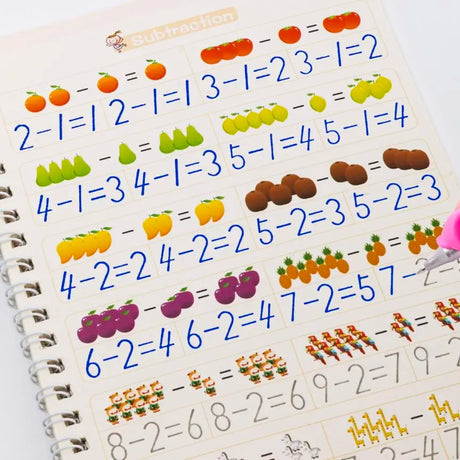 Subtraction
2-1=1 2-1=1 3-1=2 3-1=2
4-1=3 4-1=3 5-1=4 5-1=4
4-2=2 4-2=2 5-2=3 5-2=3
6-2=4 6-2=4 7-2=5 7-2=5
8-2=6 8-2=6 9-2=7 9-2
7-2=4 7